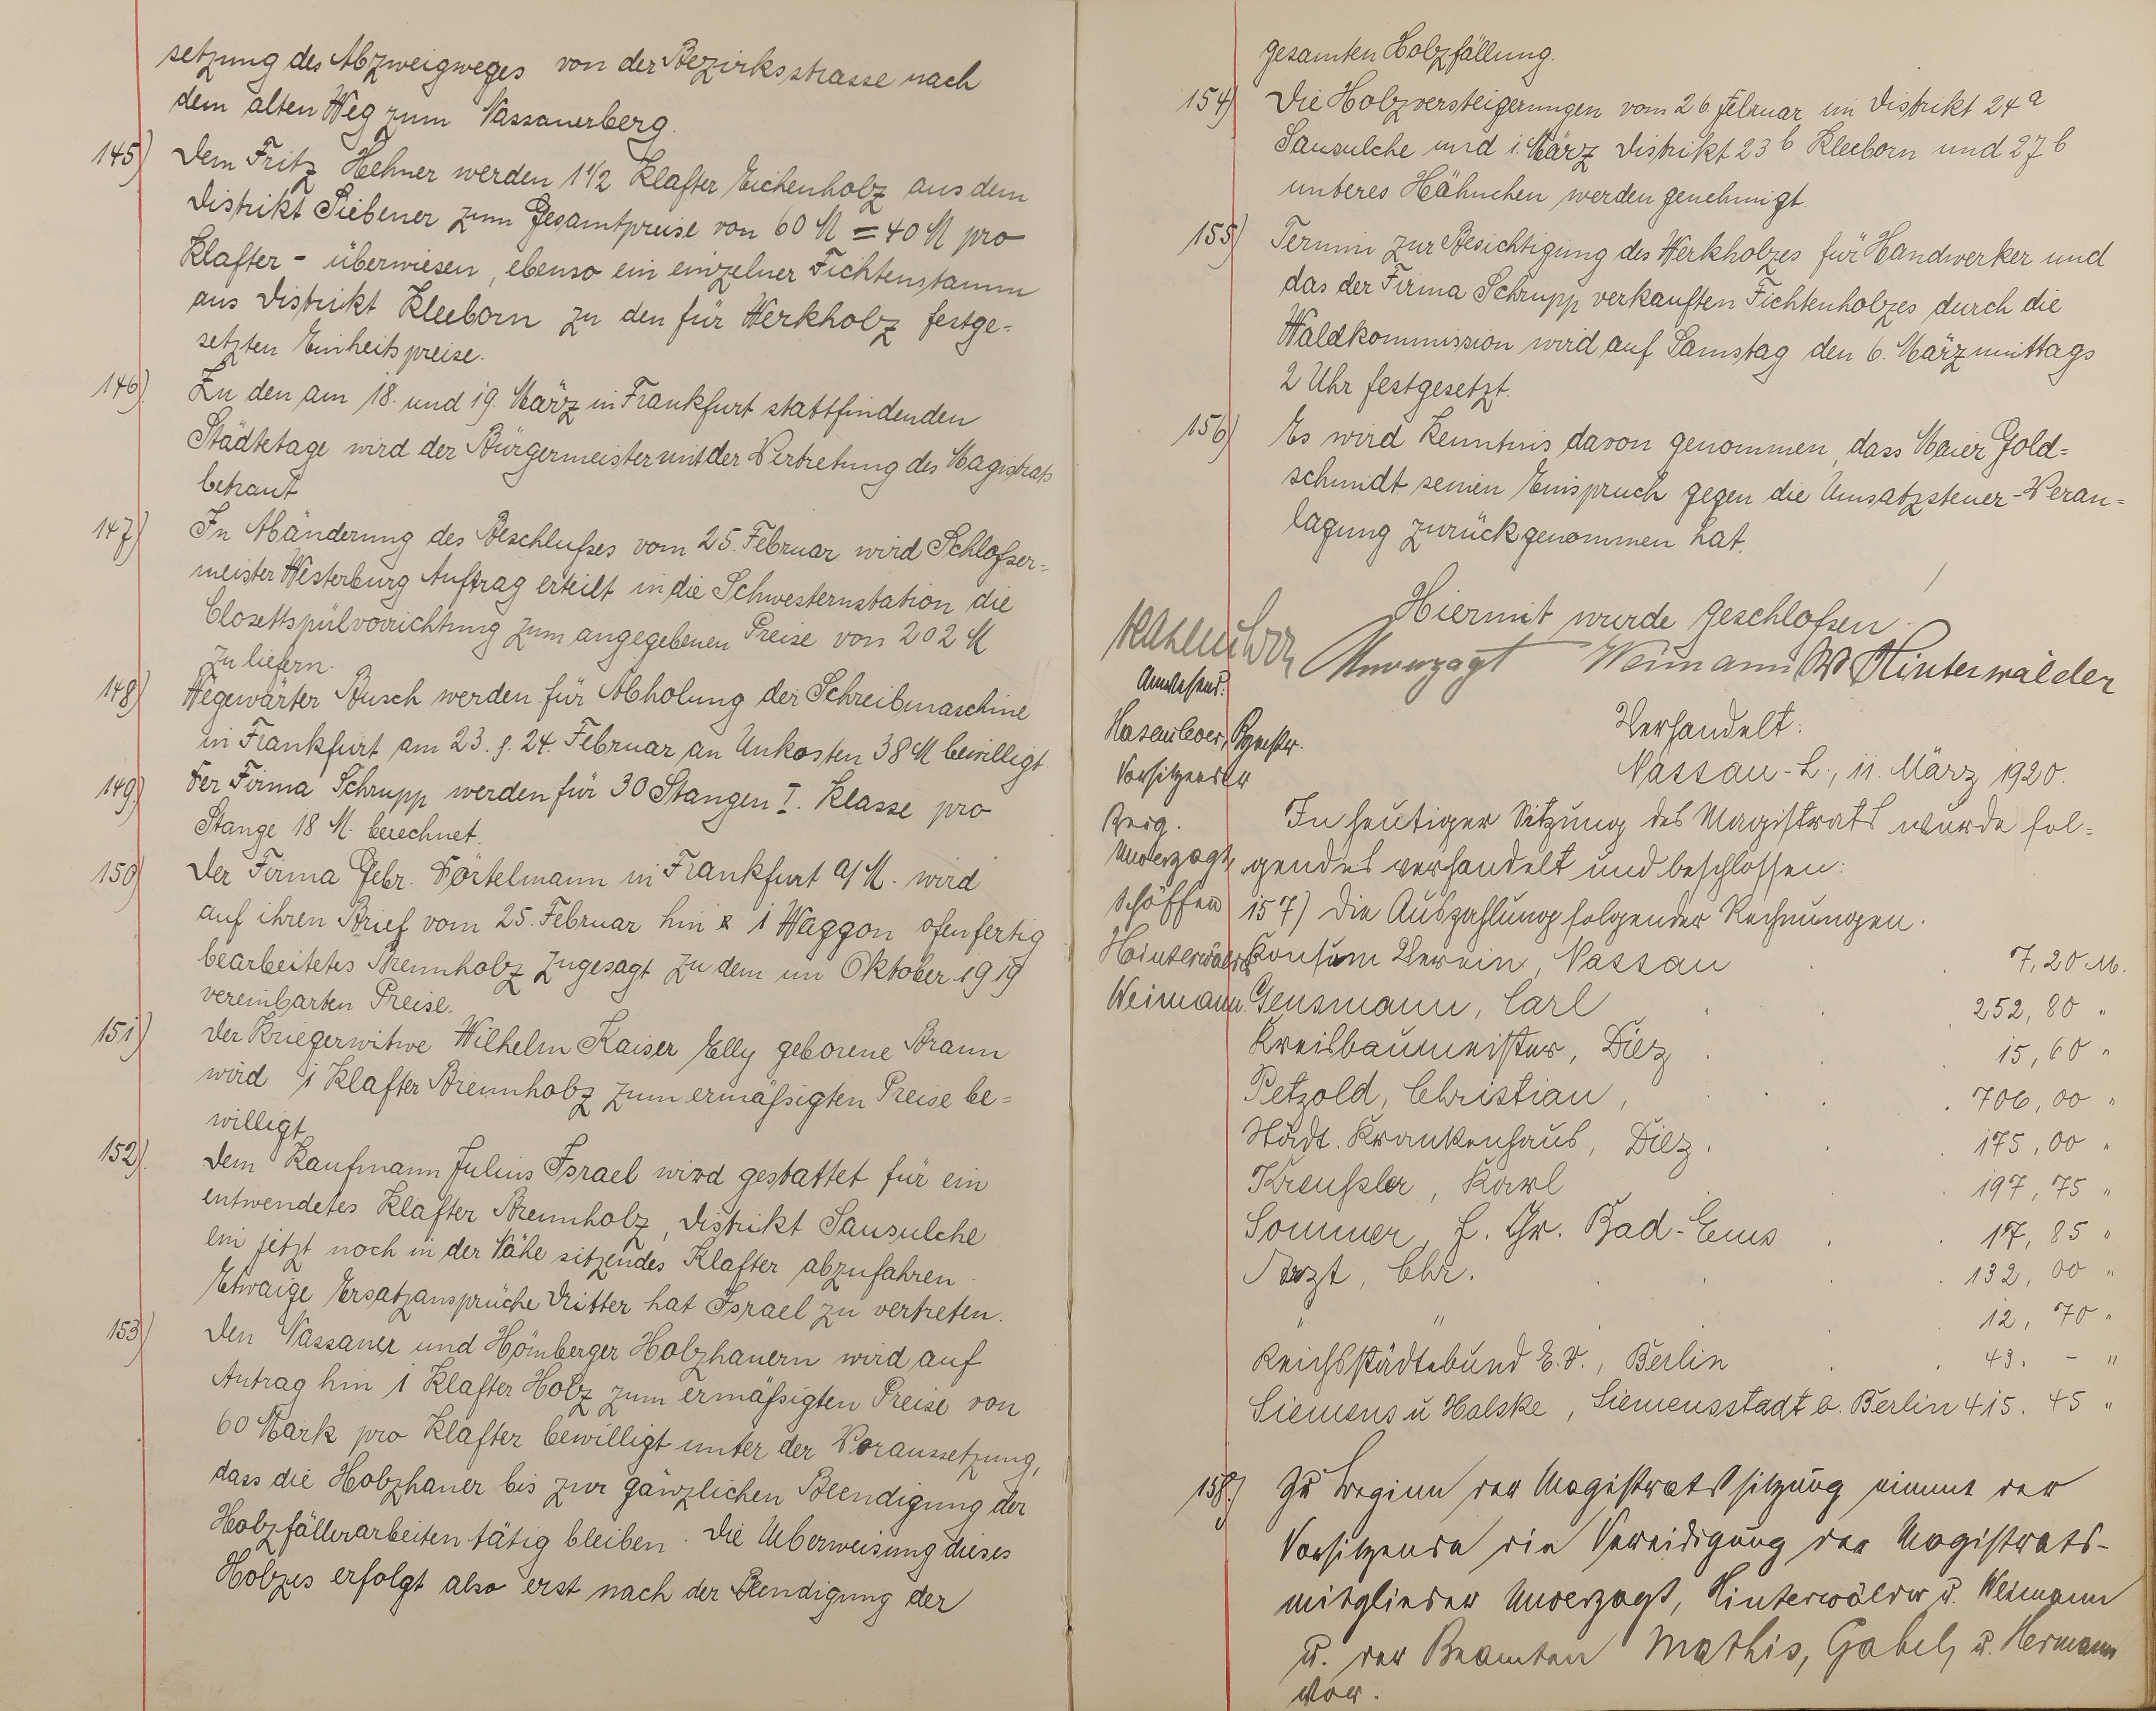 setzung des Abzweigweges von der Bezirksstrasse nach
dem alten Weg zum Nassauerberg.
145) Dem Fritz Hehner werden 1 1/2 Klafter Eichenholz aus dem
Distrikt Siebener zum Gesamtpreise von 60 M = 40 M pro
Klafter - überwiesen, ebenso ein einzelner Fichtenstamm
aus Distrikt Kleeborn zu den für Werkholz festge=
setzten Einheitspreise.
146) Zu den am 18. und 19. März in Frankfurt stattfindenden
Städtetage wird der Bürgermeister mit der Vertretung des Magistrats
betraut
147) In Abänderung des Beschlußes vom 25. Februar wird Schloßer=
meister Westerburg Auftrag erteilt in die Schwesternstation die
Closettspülvorrichtung zum angegebenen Preise von 202 M
zu liefern.
148) Wegewärter Busch werden für Abholung der Schreibmaschine
in Frankfurt am 23. & 24. Februar an Unkosten 38 M bewilligt.
149) Der Firma Schrupp werden für 30 Stangen I. Klasse pro
Stange 18 M. berechnet.
150) Der Firma Gebr. Förtelmann in Frankfurt a/M. wird
auf ihren Brief vom 25. Februar hin 1 Waggon ofenfertig
bearbeitetes Brennholz zugesagt zu dem im Oktober 1919
vereinbarten Preise.
151) Der Kriegerwitwe Wilhelm Kaiser Elly geborene Braun
wird 1 Klafter Brennholz zum ermäßigten Preise be=
willigt
152) Dem Kaufmann Julius Israel wird gestattet für ein
entwendetes Klafter Brennholz, Distrikt Sausulche
ein jetzt noch in der Nähe sitzendes Klafter abzufahren.
Etwaige Ersatzansprüche Dritter hat Israel zu vertreten.
153) Den Nassauer und Hömberger Holzhauern wird auf
Antrag hin 1 Klafter Holz zum ermäßigten Preise von
60 Mark pro Klafter bewilligt unter der Voraussetzung,
dass die Holzhauer bis zur gänzlichen Beendigung der
Holzfällerarbeiten tätig bleiben. Die Ueberweisung dieses
Holzes erfolgt also erst nach der Beendigung der
gesamten Holzfällung.
154) Die Holzversteigerungen vom 26 Februar im Distrikt 24 a
Sausulche und 1. März Distrikt 23 b Kleeborn und 27 b
unteres Hähnchen werden genehmigt.
155) Termin zur Besichtigung des Werkholzes für Handwerker und
das der Firma Schrupp verkauften Fichtenholzes durch die
Waldkommission wird auf Samstag den 6. März mittags
2 Uhr festgesetzt.
156) Es wird Kenntnis davon genommen, dass Maier Gold=
schmidt seinen Einspruch gegen die Umsatzsteuer-Veran=
lagung zurückgenommen hat.
Hiermit wurde geschloßen.
Hasenclever Unverzagt Weimann W Hinterwälder
Anwesend:
Hasenclever, Bgmstr.
Vorsitzender
Berg.
Unverzagt,
Schöffen
Hinterwälder
Weimann.
Verhandelt:
Nassau-L., 11. März 1920.
In heutiger Sitzung des Magistrats wurde fol=
gendes verhandelt und beschlossen:
157) Die Auszahlung folgender Rechnungen.
Konsum Verein, Nassau 7,20 M.
Gensmann, Carl 252,80 "
Kreisbaumeister, Diez 15,60 "
Petzold, Christian, 706,00 "
Städt. Krankenhaus, Diez. 175,00 "
Kreußler, Karl 197,75 "
Sommer, H. Chr. Bad-Ems 17,85 "
Arzt, Chr. 132,00 "
" " 12,70 "
Reichsstädtebund E.V., Berlin 43. - "
Siemens u Halske, Siemensstadt b. Berlin 415.45 "
158.) Zu Beginn der Magistratssitzung nimmt der
Vorsitzende die Vereidigung der Magistrats-
mitglieder Unverzagt, Hinterwälder u. Weimann
u. der Beamten Mathis, Gabel, u. Hermann
vor.